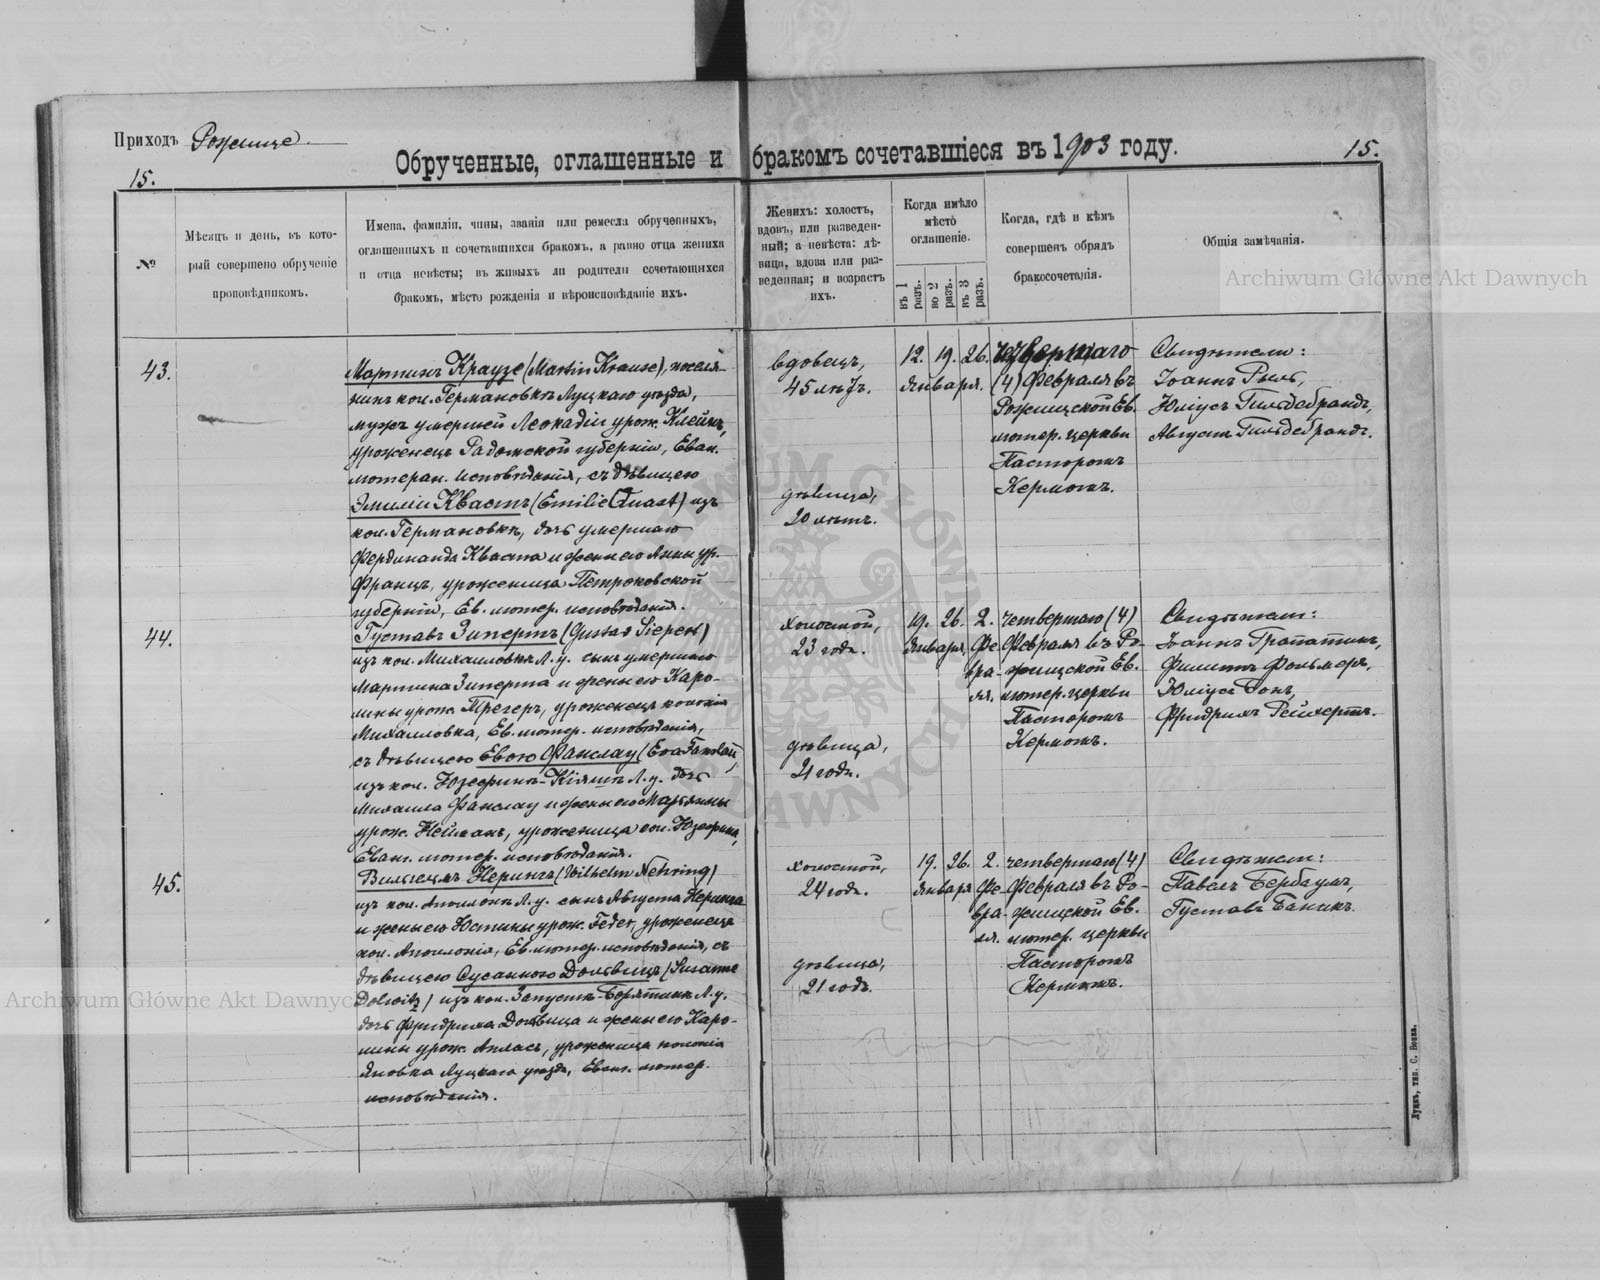 Приходъ Рожище.
Обрученные, оглашенные и бракомъ сочетавшіеся въ 1903 году.
15.
15.
№
Мѣсяцъ и день, въ кото-
рый совершено обрученіе
проповѣдникомъ.
Имена, фамиліи, чины, званія или ремесла обрученныхъ,
оглашенныхъ и сочетавшихся бракомъ, а равно отца жениха
и отца невѣсты; въ живыхъ ли родители сочетающихся
бракомъ, мѣсто рожденія и вѣроисповѣданіе ихъ.
Женихъ: холостъ,
вдовъ, или разведен-
ный; а невѣста: дѣ-
вица, вдова или раз-
веденная; и возрастъ
ихъ.
Когда имѣло
мѣсто
оглашеніе.
въ 1 разъ.
во 2 разъ.
въ 3 разъ.
Когда, гдѣ и кѣмъ
совершенъ обрядъ
бракосочетанія.
Общія замѣчанія.
43.
Мартинъ Краузе (Martin Krause), поселя-
нинъ кол. Германовкѣ Луцкаго уѣзда,
мужъ умершей Леокадіи урож. Клейнъ,
уроженецъ Радомской губерніи, Еван.
лютеран. исповѣданія, съ дѣвицею
Эмиліи Квастъ (Emilie Quast) изъ
кол. Германовкѣ, дочь умершаго
Фердинанда Кваста и жены его Анны ур.
Францъ, уроженица Петроковской
губерніи, Ев. лютер. исповѣданія.
вдовецъ,
45 лѣтъ.
дѣвица,
20 лѣтъ.
12. 19. 26.
Января.
четвертаго
(4) Февраля въ
Рожищской Ев.
лютер. церкви
Пасторомъ
Кермомъ.
Свидѣтели:
Іоаннъ Рыль,
Юліусъ Гильдебрандъ,
Августъ Гильдебрандъ.
44.
Густавъ Зипертъ (Gustav Siepert)
изъ кол. Михаиловкѣ Л. у. сынъ умершаго
Мартина Зиперта и жены его Каро-
лины урож. Трегеръ, уроженецъ колонія
Михаиловка, Ев. лютер. исповѣданія,
съ дѣвицею Евою Фанслау (Eva Fanslau)
изъ кол. Юзефинъ-Кіяшъ Л. у. дочь
Михаила Фанслау и жены его Марьянны
урож. Нейманъ, уроженица кол. Юзефина,
Еван. лютер. исповѣданія.
холостой,
23 годъ.
дѣвица,
21 годъ.
19. 26. 2.
Января, Фе-
вра-
ля.
четвертаго (4)
Февраля въ Ро-
жищской Ев.
лютер. церкви
Пасторомъ
Кермомъ.
Свидѣтели:
Іоаннъ Грапатинъ,
Филиппъ Фольмеръ,
Юліусъ Бокъ,
Фридрихъ Рейхертъ.
45.
Вильгельмъ Нерингъ (Wilhelm Nehring)
изъ кол. Аполонкѣ Л. у. сынъ Августа Неринга
и жены его Юстины урож. Гедег, уроженецъ
кол. Аполонія, Ев. лютер. исповѣданія, съ
дѣвицею Сусанною Дольвицъ (Susanne
Dolwitz) изъ кол. Запустъ-Борятинъ Л. у.
дочь Фридриха Дольвица и жены его Каро-
лины урож. Атласъ, уроженица колонія
Яновка Луцкаго уѣзда, Еван. лютер.
исповѣданія.
холостой,
24 годъ.
дѣвица,
21 годъ.
19. 26. 2.
Января Фе-
вра-
ля.
четвертаго (4)
Февраля въ Ро-
жищской Ев.
лютер. церкви
Пасторомъ
Кермомъ.
Свидѣтели:
Павелъ Бербаумъ,
Густавъ Баникъ.
Луцкъ, тип. С. Бокка.
Archiwum Główne Akt Dawnych
Archiwum Główne Akt Dawnych